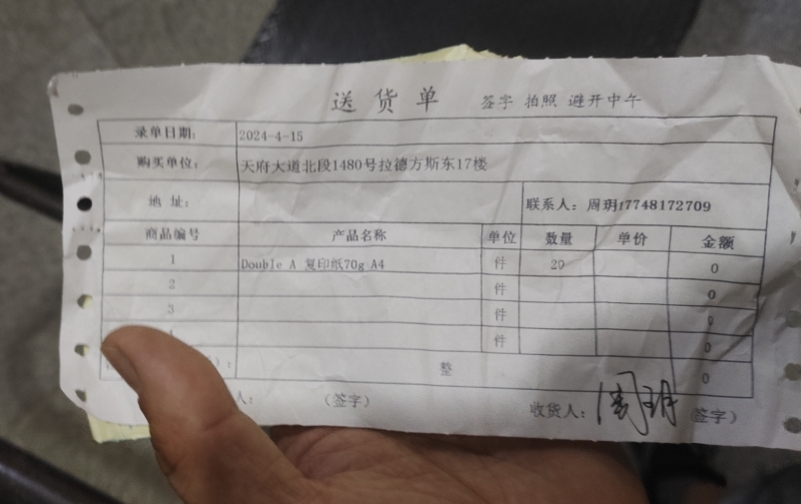 送货单 签字 拍照 避开中午
录单日期: 2024-4-15
购买单位: 天府大道北段1480号拉德方斯东17楼
地 址: 联系人: 周玥17748172709
商品编号 产品名称 单位 数量 单价 金额
1 Double A 复印纸70g A4 件 20 0
2 件 0
3 件 0
件 0
整 0
人: (签字) 收货人: 周玥 (签字)